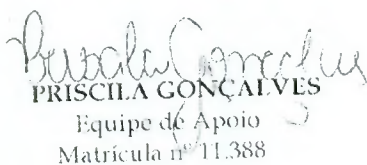 Priscila Gonçalves
PRISCILA GONÇALVES
Equipe de Apoio
Matrícula nº 11.388